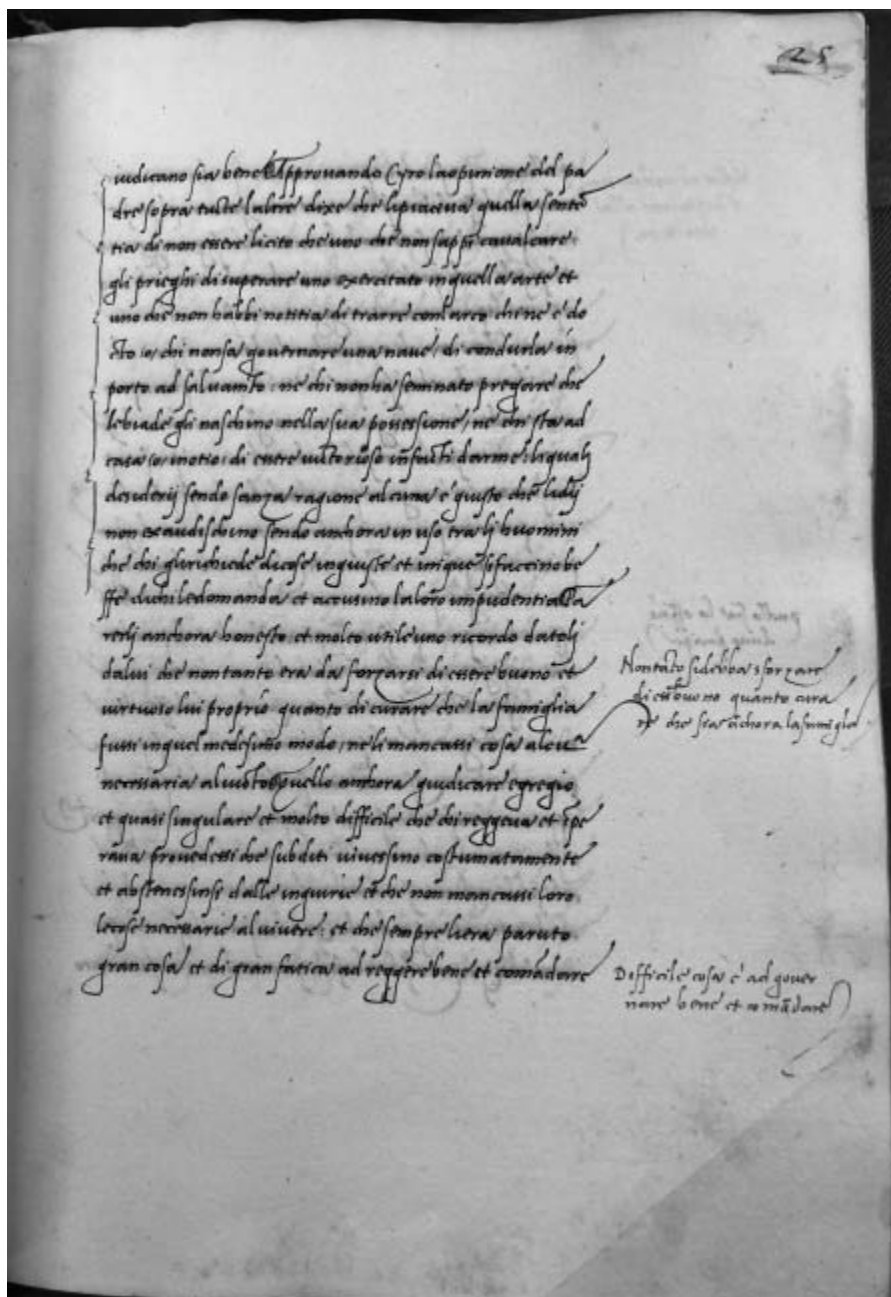 25
iudicano sia bene Approuando Cyro la opinione del pa
dre sopra tucte laltre dixe che li piaceua quella sentē
tia di non essere licito che uno che non sappi caualcare
gli prieghi di superare uno exercitato in quella arte et
uno che non habbi notitia di trarre con larco chi ne è do
cto o, chi non sa gouernare una naue, di condurla in
porto ad saluamto: ne chi non ha seminato pregare che
le biade gli naschino nella sua possessione, ne chi sta ad
casa o, in otio: di essere uictorioso in facti darme: li quali
desiderij sendo sanza ragione alcuna è giusto che lidij
non exaudischino sendo anchora in uso tra li huomini
che chi gli richiede di cose ingiuste et inique si faccino be
ffe di chi le domanda et accusino la loro impudentia Pa
rerli anchora honesto et molto utile uno ricordo datoli
da lui che non tanto era da forzarsi di essere buono et
uirtuoso lui proprio quanto di curare che la famiglia
fussi in quel medesimo modo, ne li mancassi cosa alcuna
necessaria al uicto Quello anchora giudicare egregio
et quasi singulare et molto difficile che chi reggeua et īpe
raua prouedessi che subditi uiuessino costumatamente
et abstenessinsi dalle ingiurie et che non mancassi loro
le cose necessarie al uiuere: et che sempre li era paruto
gran cosa et di gran fatica ad reggere bene et comādare
Non tāto si debba sforzare
di esser buono quanto cura
re che sia āchora la famigla
Difficile cosa è ad gouer
nare bene et comādare